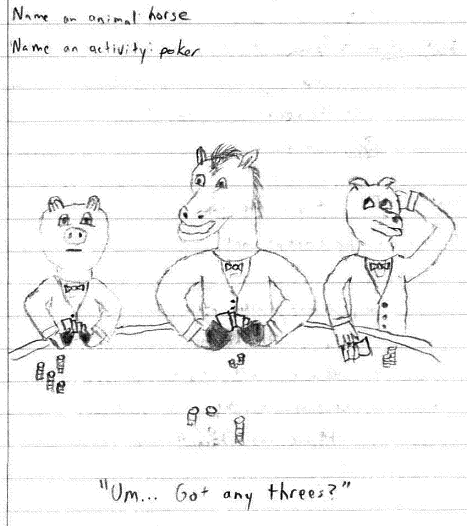 Name an animal: horse
Name an activity: poker
"Um... Got any threes?"